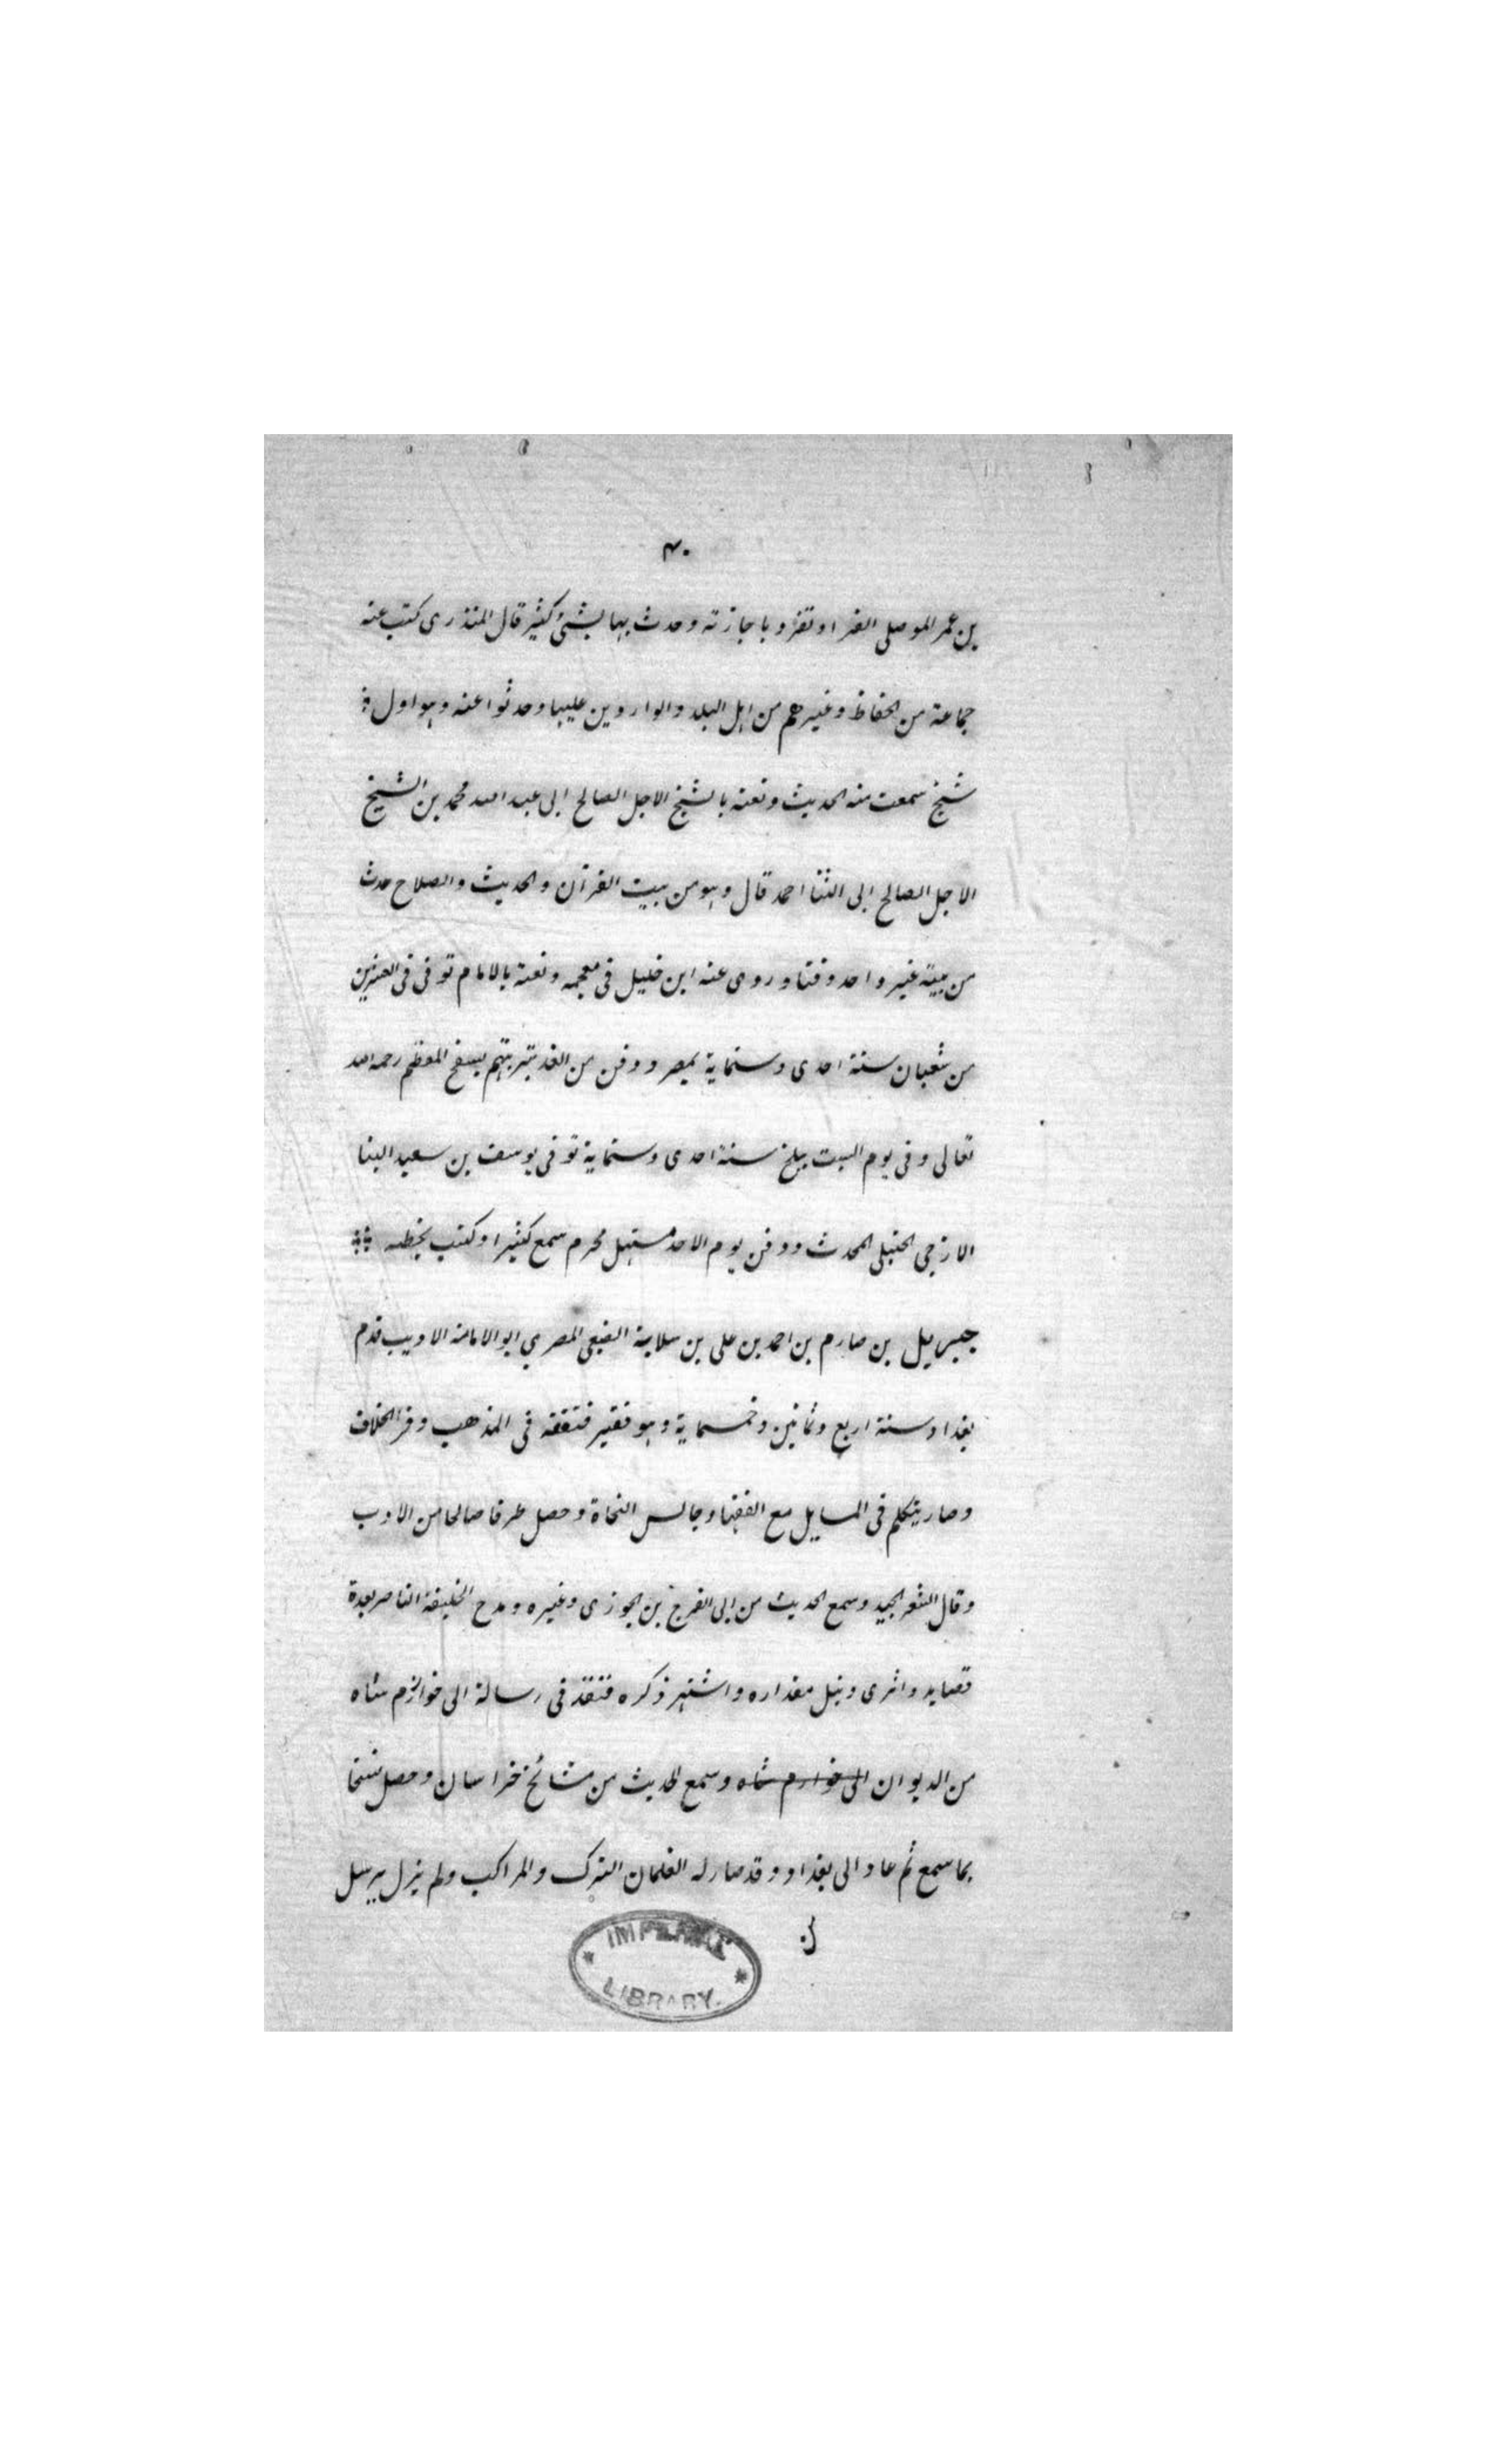 ۴۰
بن عمر الموصلى الفراوتفرد باجازته وحدث بها بشئ كثير قال المنذرى كتب عنه
جماعة من الحفاظ وغيرهم من اهل البلد والواردين عليها وحدثوا عنه وهو اول
شيخ سمعت منه الحديث ونعته بالشيخ الاجل الصالح ابى عبد الله محمد بن الشيخ
الاجل الصالح ابى الثنا احمد قال وهو من بيت القرآن والحديث والصلاح حدث
من بيته غير واحد وفتا وروى عنه ابن خليل فى معجمه ونعته بالامام توفى فى العشرين
من شعبان سنة احدى وستماية بمصر ودفن من الغد بتربتهم بسفح المعظم رحمه الله
تعالى وفى يوم السبت ببلخ سنة احدى وستماية توفى يوسف بن سعيد البنا
الازجى الحنبلى المحدث ودفن يوم الاحد مستهل محرم سمع كثيرا وكتب بخطه
جبريل بن صارم بن احمد بن على بن سلامة الضبعى المصري ابو الامانة الاديب قدم
بغداد سنة اربع وثمانين وخمسماية وهو فقير فتفقه فى المذهب وقرا الخلاف
وصار يتكلم فى المسايل مع الفقها وجالس النحاة وحصل طرفا صالحا من الادب
وقال الشعر الجيد وسمع الحديث من ابى الفرج بن الجوزى وغيره ومدح الخليفة الناصر بعدة
قصايد واثرى ونبل مقداره واشتهر ذكره فنفذ فى رسالة الى خوارزم شاه
من الديوان الى خوارم شاه وسمع الحديث من مشائخ خراسان وحصل نسخا
بما سمع ثم عاد الى بغداد وقد صار له الغلمان الترك والمراكب ولم يزل يرسل
IMPERIAL
LIBRARY.